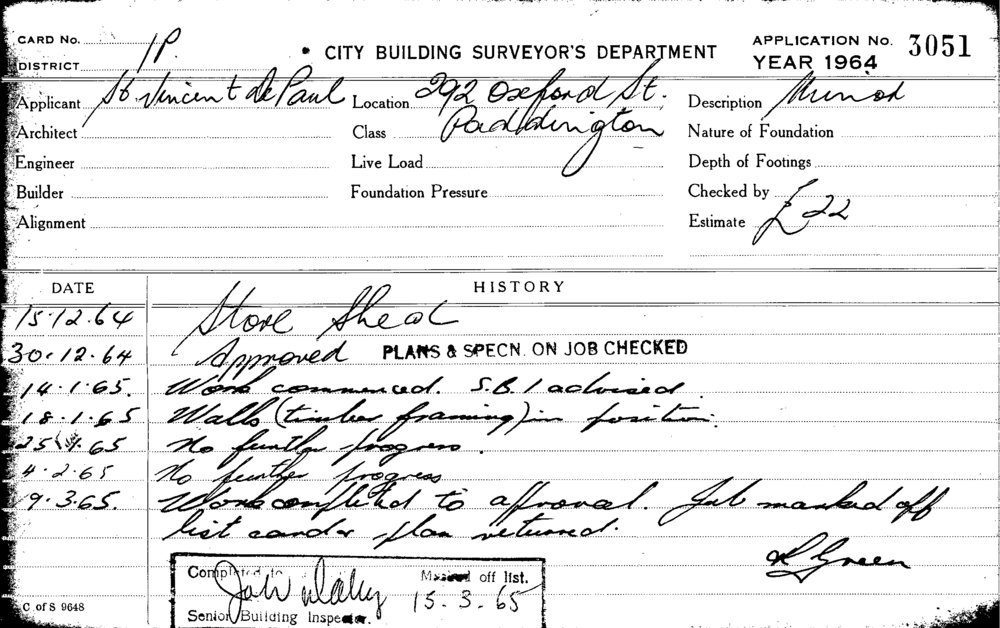 CARD No. 1P. CITY BUILDING SURVEYOR'S DEPARTMENT APPLICATION No. 3051
DISTRICT YEAR 1964
Applicant St Vincent de Paul Location 292 Oxford St. Description Minor
Architect Class Paddington Nature of Foundation
Engineer Live Load Depth of Footings
Builder Foundation Pressure Checked by
Alignment Estimate £22
DATE HISTORY
15.12.64 Store Shed
30.12.64 Approved PLANS & SPECN. ON JOB CHECKED
14.1.65. Work commenced. S.B.1 advised
18.1.65 Walls (timber framing) in position.
25.1.65 No further progress.
4.2.65 No further progress
9.3.65. Work completed to approval. Job marked off
list card & plan returned.
R Green
Completed to Marked off list.
15.3.65
Senior Building Inspector.
C of S 9648